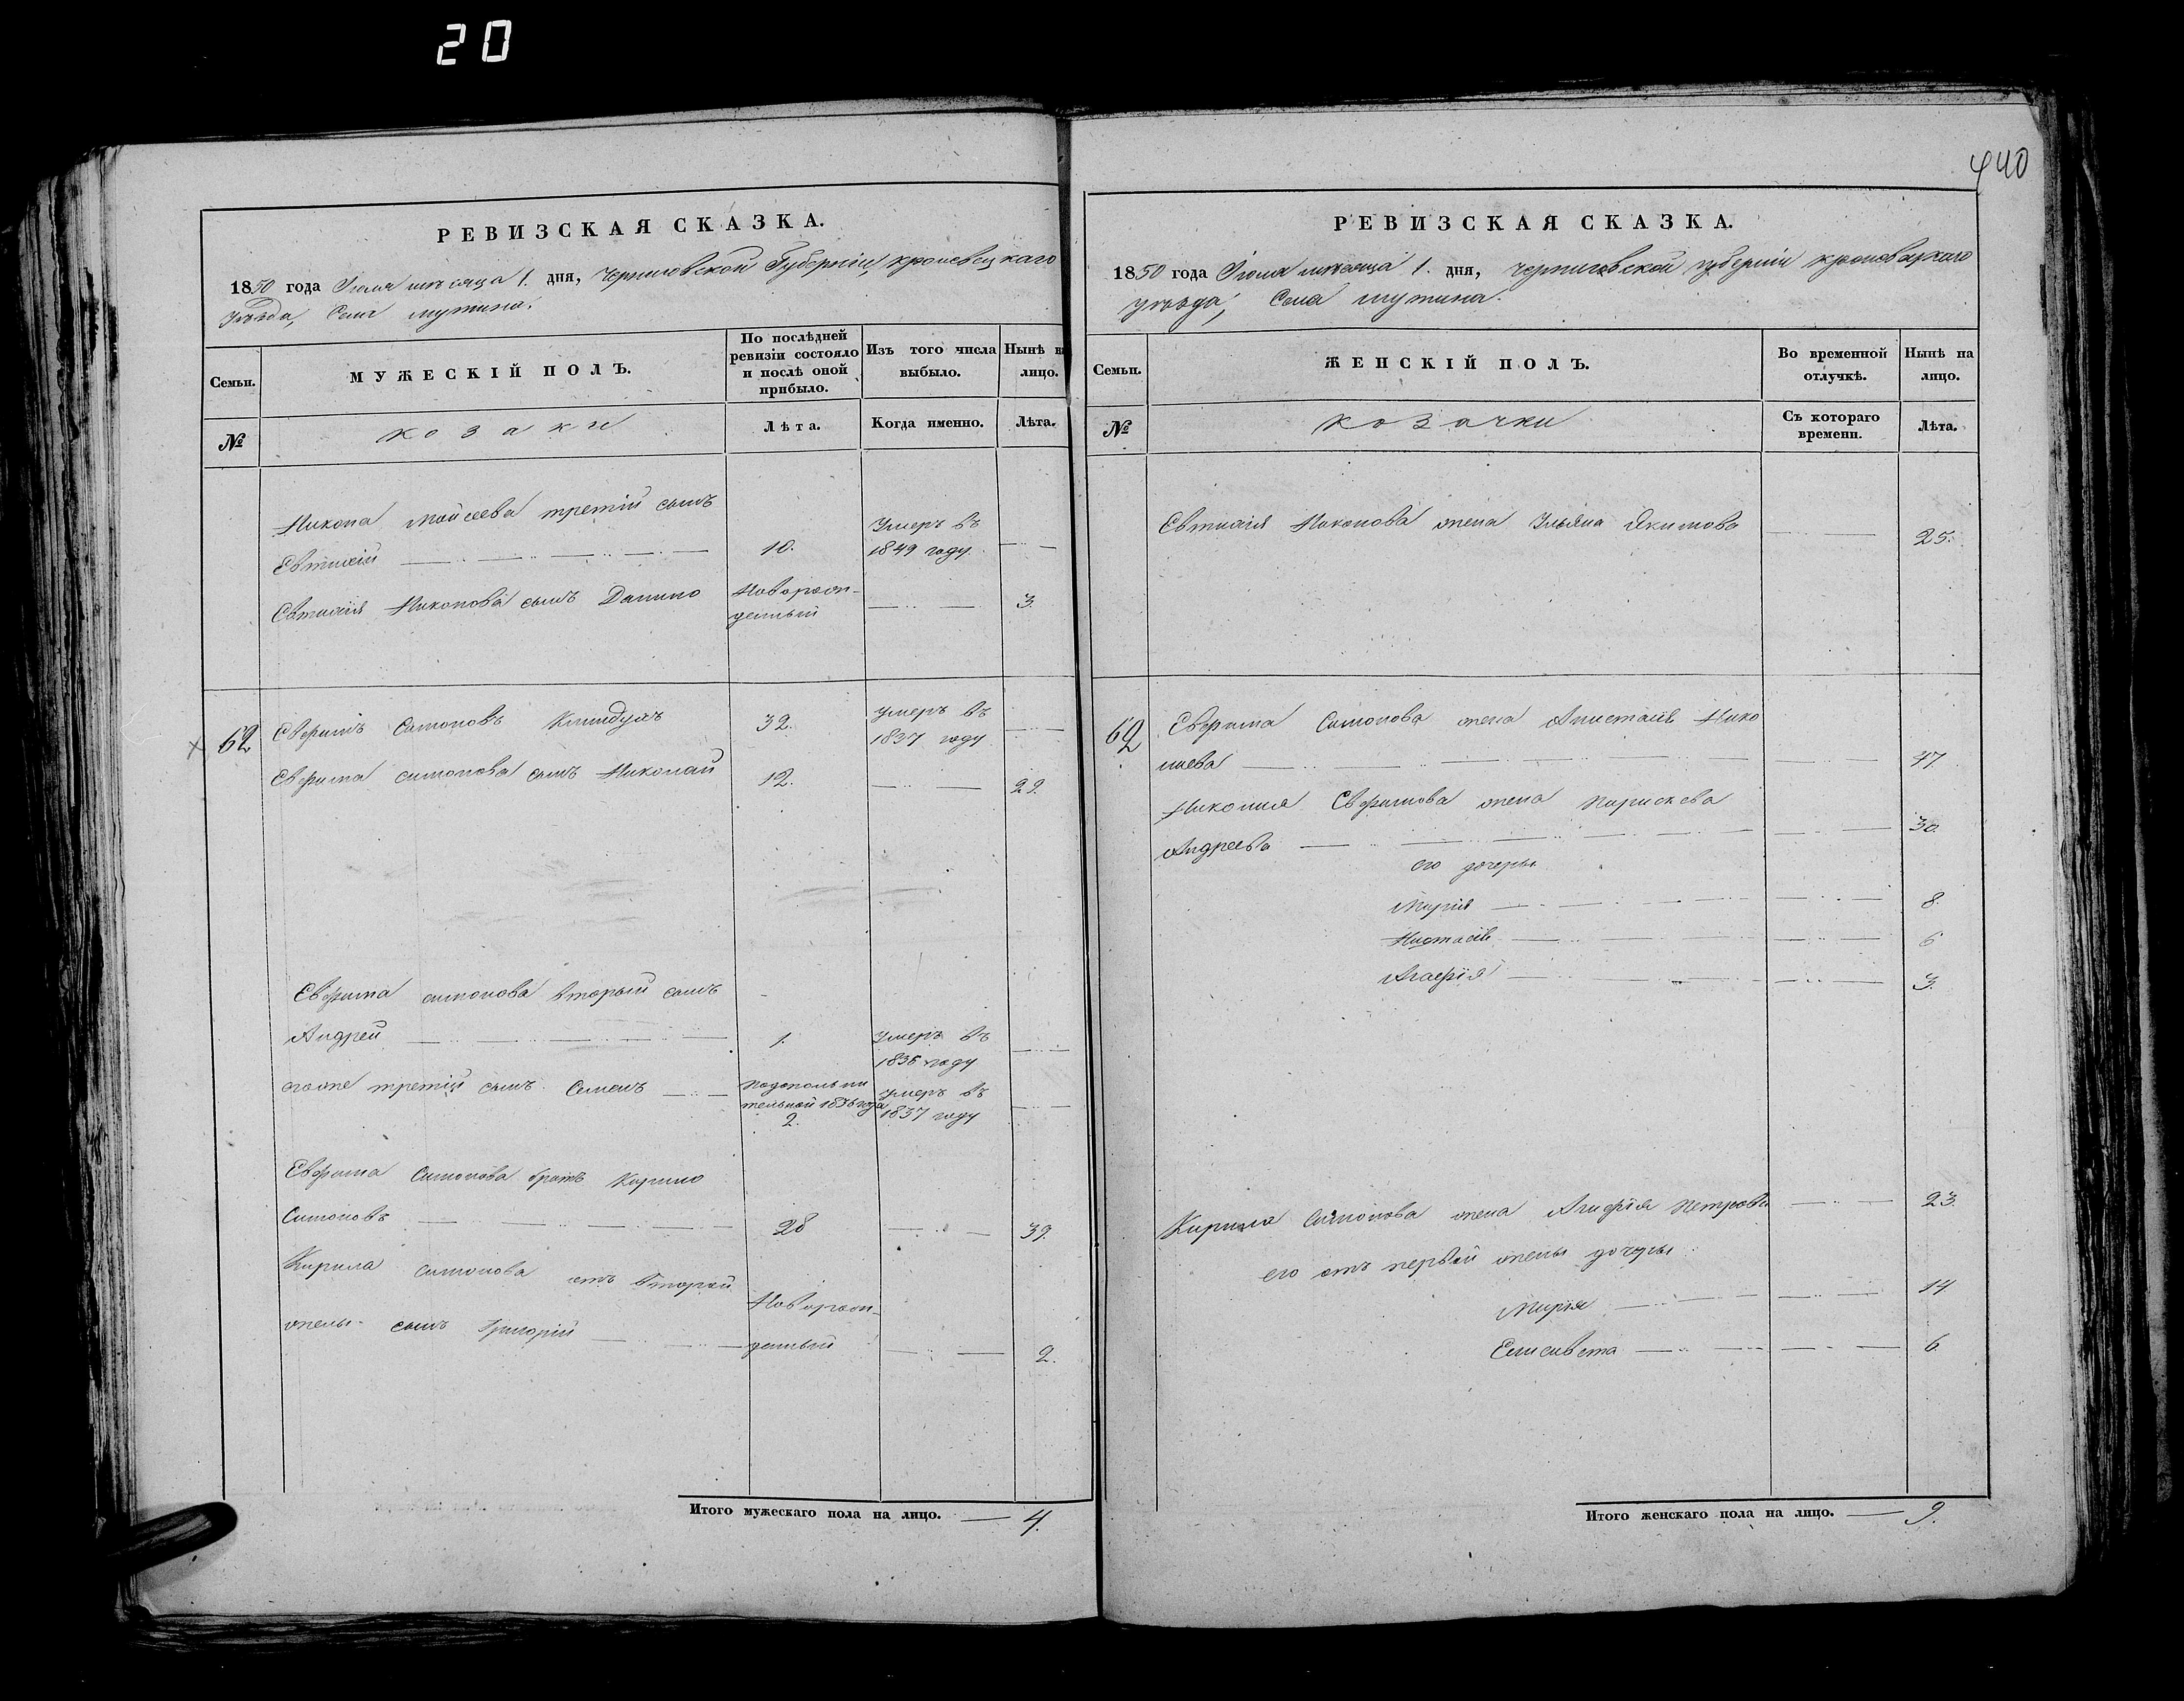 20
440
РЕВИЗСКАЯ СКАЗКА.
1850 года Іюля мѣсяца 1. дня, Черниговской Губерніи, кролевецкаго
уѣзда, Села мутина.
Семьи.
МУЖЕСКІЙ ПОЛЪ.
По послѣдней
ревизіи состояло
и послѣ оной
прибыло.
Изъ того числа
выбыло.
Нынѣ на
лицо.
№
козаки
Лѣта.
Когда именно.
Лѣта.
Никона Мойсеева третій сынъ
Евтихій 10. Умеръ въ
1849 году
Евтихія Никонова сынъ Данило Новорож-
денный 3.
62 Евфимъ Симоновъ 32. умеръ въ
1837 году
Евфима симонова сынъ Николай 12. 29.
Евфима симонова вторый сынъ
Андрей 1. Умеръ въ
1836 году
огоже третій сынъ Семенъ подополни
тельной 1836 года
2. умеръ въ
1837 году
Евфима Симонова братъ Кирило
Симоновъ 28 39.
Кирила симонова отъ второй
жены сынъ Григорій Новорож-
денный 2.
Итого мужескаго пола на лицо. 4.
РЕВИЗСКАЯ СКАЗКА.
1850 года Іюля мѣсяца 1. дня, черниговской губерніи кролевецкаго
уѣзда, Села мутина.
Семьи.
ЖЕНСКІЙ ПОЛЪ.
Во временной
отлучкѣ.
Нынѣ на
лицо.
№
козачки
Съ котораго
времени.
Лѣта.
Евтихія Никонова жена Ульяна Якимова 25.
62 Евфима Симонова жена Анистасія Нико
лаева 47.
Николая Евфимова жена Параскева
Андреева 30.
его дочеры
Марія 8.
Настасія 6
Агафія 3.
Кирила Симонова жена Агафія Петрова 23.
его отъ первой жены дочеры
Марія 14
Елисавета 6
Итого женскаго пола на лицо. 9.